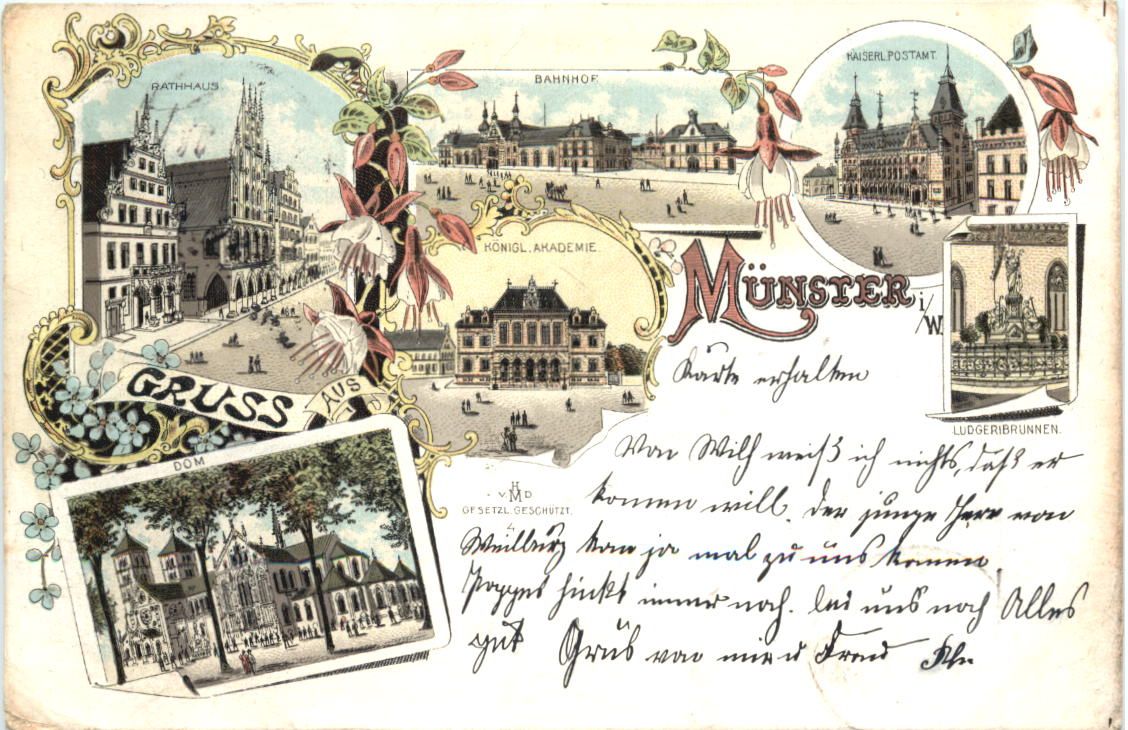 RATHHAUS.
BAHNHOF.
KAISERL. POSTAMT.
KÖNIGL. AKADEMIE.
MÜNSTER i/W.
LUDGERIBRUNNEN.
GRUSS AUS
DOM
H
v M D
GESETZL. GESCHÜTZT.
4
Karte erhalten
Von Wilh weiß ich nichts, daß er
kommen will. Der junge Herr von
Weilburg kan ja mal zu uns kommen
hinkt immer noch. bei uns noch Alles
gut Grüß von mir u